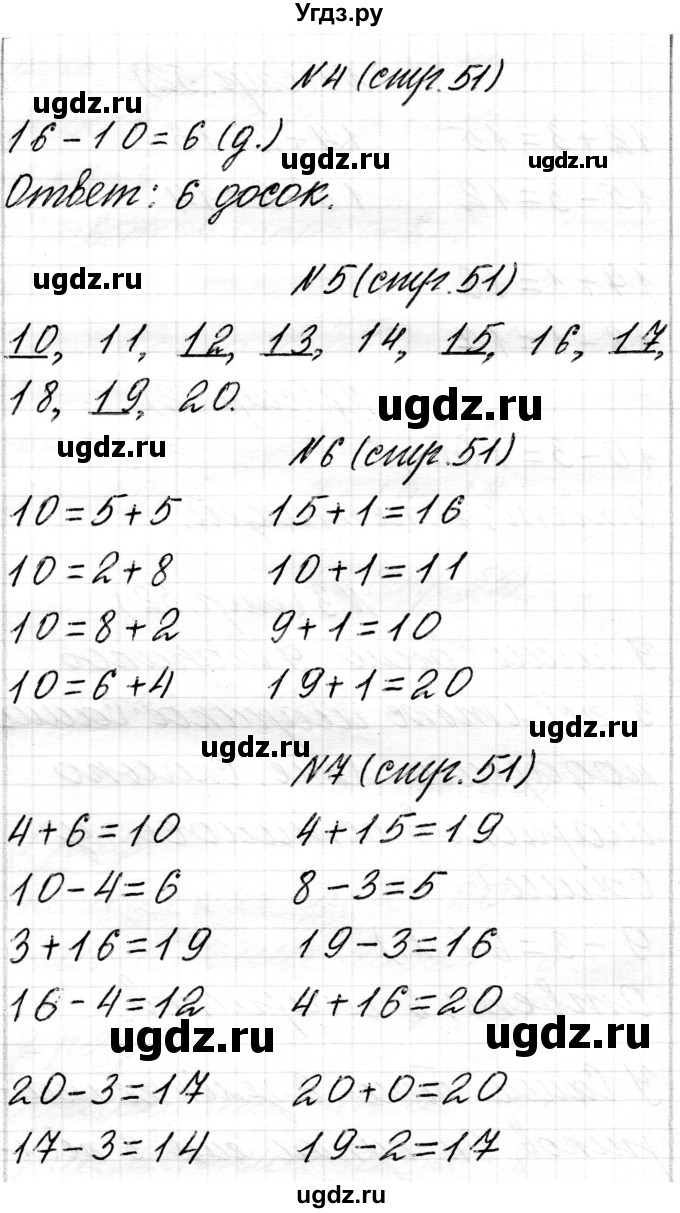 Угдз.ру
№4 (стр. 51)
ugdz.ru
16-10=6 (д.)
ugdz.ru ugdz.ru
Ответ: 6 досок.
ugdz.ru №5 (стр. 51)
10, 11, 12, 13, 14, 15, 16, 17,
18, 19, 20.
ugdz.ru
ugdz.ru №6 (стр. 51)
10=5+5 15+1=16
10=2+8 10+1=11
10=8+2 9+1=10
10=6+4 19+1=20
ugdz.ru
ugdz.ru
№7 (стр. 51)
4+6=10 4+15=19
10-4=6 8-3=5
3+16=19 19-3=16
16-4=12 4+16=20
ugdz.ru ugdz.ru
20-3=17 20+0=20
17-3=14 19-2=17
ugdz.ru